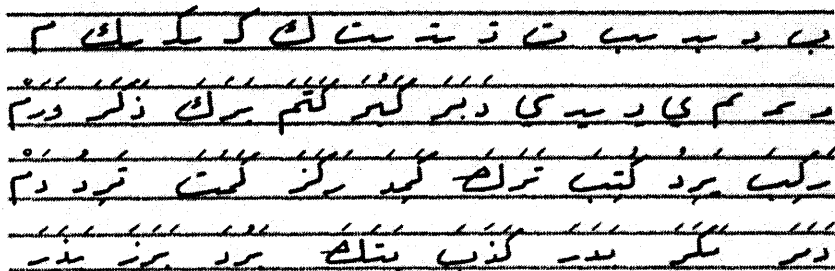 ب بـ ـبـ ـب ت تـ ـتـ ـت ك كـ ـكـ ـك م
مـ ـمـ ـم ي يـ ـيـ ـي دَبَرَ كَبُرَ كَتَمَ بَرَكَ ذَكَرَ وَرَمْ
رَكِبَ يَرِدُ كُتِبَ تَرَكَ كَمِدَ رَكَزَ كَمُتَ تَرِدُ دَمْ
دَمَرَ مَكَرَ بَدَرَ كَذَبَ بَتَكَ بَرُدَ بَرَزَ بَذَرَ